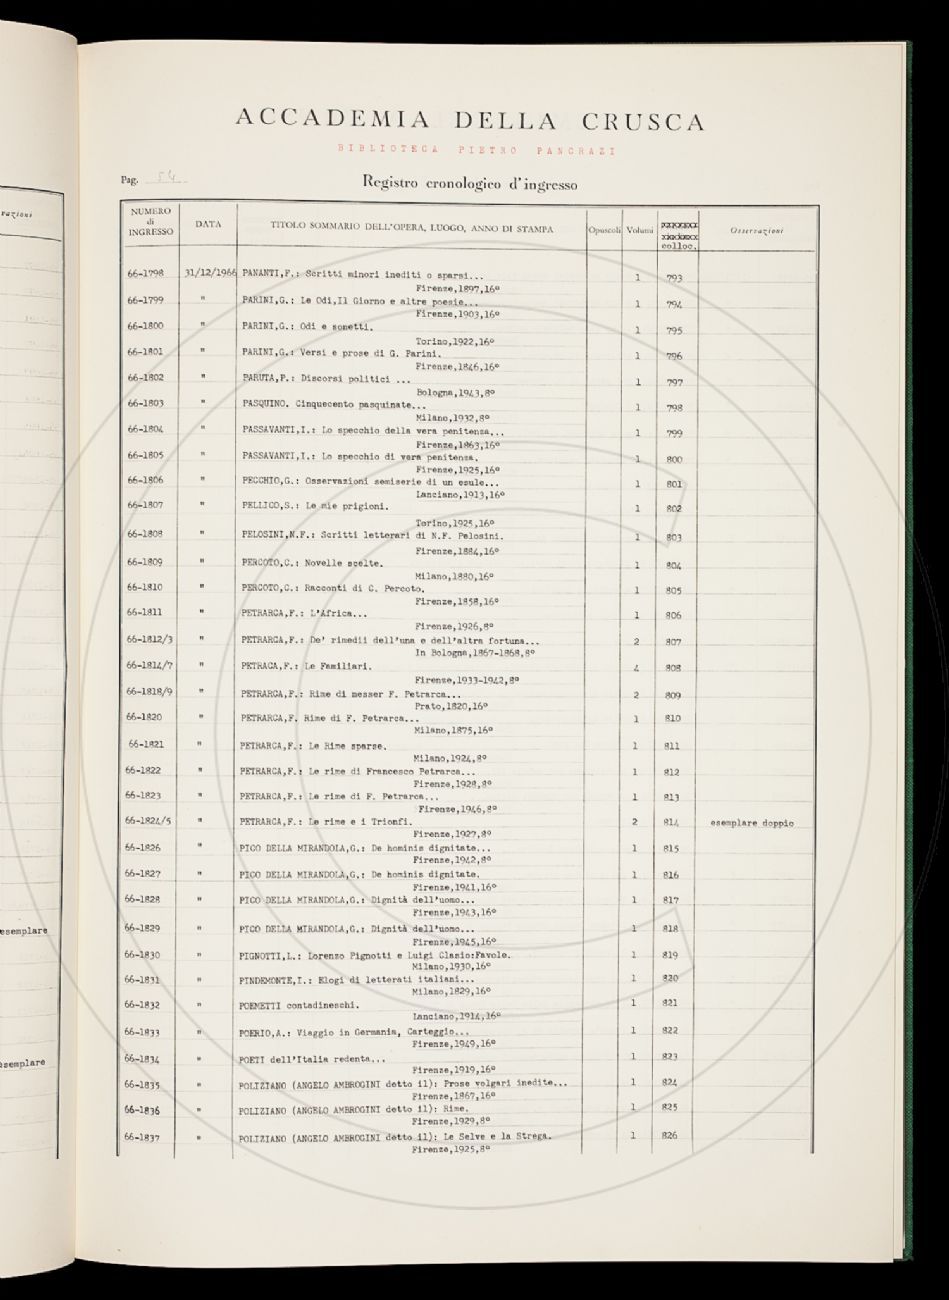 ACCADEMIA DELLA CRUSCA
BIBLIOTECA PIETRO PANCRAZI
Pag. 54
Registro cronologico d'ingresso
NUMERO di INGRESSO DATA TITOLO SOMMARIO DELL'OPERA, LUOGO, ANNO DI STAMPA Opuscoli Volumi colloc. Osservazioni
66-1798 31/12/1966 PANANTI,F.: Scritti minori inediti o sparsi... 1 793
Firenze,1897,16º
66-1799 " PARINI,G.: Le Odi,Il Giorno e altre poesie... 1 794
Firenze,1903,16º
66-1800 " PARINI,G.: Odi e sonetti. 1 795
Torino,1922,16º
66-1801 " PARINI,G.: Versi e prose di G. Parini. 1 796
Firenze,1846,16º
66-1802 " PARUTA,P.: Discorsi politici ... 1 797
Bologna,1943,8º
66-1803 " PASQUINO. Cinquecento pasquinate... 1 798
Milano,1932,8º
66-1804 " PASSAVANTI,I.: Lo specchio della vera penitenza... 1 799
Firenze,1863,16º
66-1805 " PASSAVANTI,I.: Lo specchio di vera penitenza. 1 800
Firenze,1925,16º
66-1806 " PECCHIO,G.: Osservazioni semiserie di un esule... 1 801
Lanciano,1913,16º
66-1807 " PELLICO,S.: Le mie prigioni. 1 802
Torino,1925,16º
66-1808 " PELOSINI,N.F.: Scritti letterari di N.F. Pelosini. 1 803
Firenze,1884,16º
66-1809 " PERCOTO,C.: Novelle scelte. 1 804
Milano,1880,16º
66-1810 " PERCOTO,C.: Racconti di C. Percoto. 1 805
Firenze,1858,16º
66-1811 " PETRARCA,F.: L'Africa... 1 806
Firenze,1926,8º
66-1812/3 " PETRARCA,F.: De' rimedii dell'una e dell'altra fortuna... 2 807
In Bologna,1867-1868,8º
66-1814/7 " PETRACA,F.: Le Familiari. 4 808
Firenze,1933-1942,8º
66-1818/9 " PETRARCA,F.: Rime di messer F. Petrarca... 2 809
Prato,1820,16º
66-1820 " PETRARCA,F. Rime di F. Petrarca... 1 810
Milano,1875,16º
66-1821 " PETRARCA,F.: Le Rime sparse. 1 811
Milano,1924,8º
66-1822 " PETRARCA,F.: Le rime di Francesco Petrarca... 1 812
Firenze,1928,8º
66-1823 " PETRARCA,F.: Le rime di F. Petrarca... 1 813
Firenze,1946,8º
66-1824/5 " PETRARCA,F.: Le rime e i Trionfi. 2 814 esemplare doppio
Firenze,1927,8º
66-1826 " PICO DELLA MIRANDOLA,G.: De hominis dignitate... 1 815
Firenze,1942,8º
66-1827 " PICO DELLA MIRANDOLA,G.: De hominis dignitate. 1 816
Firenze,1941,16º
66-1828 " PICO DELLA MIRANDOLA,G.: Dignità dell'uomo... 1 817
Firenze,1943,16º
66-1829 " PICO DELLA MIRANDOLA,G.: Dignità dell'uomo... 1 818
Firenze,1945,16º
66-1830 " PIGNOTTI,L.: Lorenzo Pignotti e Luigi Clasio:Favole. 1 819
Milano,1930,16º
66-1831 " PINDEMONTE,I.: Elogi di letterati italiani... 1 820
Milano,1829,16º
66-1832 " POEMETTI contadineschi. 1 821
Lanciano,1914,16º
66-1833 " POERIO,A.: Viaggio in Germania, Carteggio... 1 822
Firenze,1949,16º
66-1834 " POETI dell'Italia redenta... 1 823
Firenze,1919,16º
66-1835 " POLIZIANO (ANGELO AMBROGINI detto il): Prose volgari inedite... 1 824
Firenze,1867,16º
66-1836 " POLIZIANO (ANGELO AMBROGINI detto il): Rime. 1 825
Firenze,1929,8º
66-1837 " POLIZIANO (ANGELO AMBROGINI detto il): Le Selve e la Strega. 1 826
Firenze,1925,8º
razioni
esemplare
esemplare